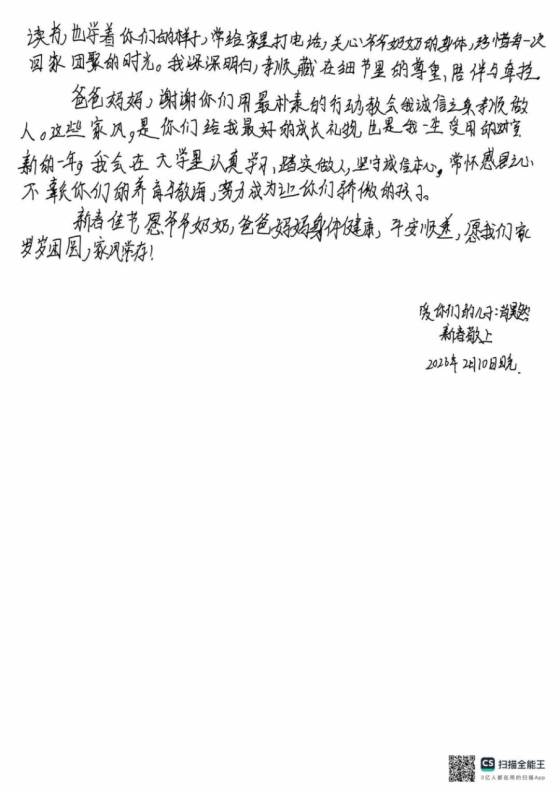 读书,也学着你们的样子,常给家里打电话,关心爷爷奶奶的身体,珍惜每一次
回家团聚的时光。我深深明白,孝顺,藏在细节里的尊重、陪伴与牵挂
爸爸妈妈,谢谢你们用最朴素的行动教会我诚信立身孝顺做
人。这些家风,是你们给我最好的成长礼物也是我一生受用的财富
新的一年,我会在大学里认真学习、踏实做人,坚守诚信本心,常怀感恩之心
不辜负你们的养育与教诲,努力成为让你们骄傲的孩子。
新春佳节愿爷爷奶奶,爸爸妈妈身体健康,平安顺遂,愿我们家
岁岁团圆,家风常存!
爱你们的儿子:
新春敬上
2026年2月10日晚.
CS 扫描全能王
3亿人都在用的扫描App